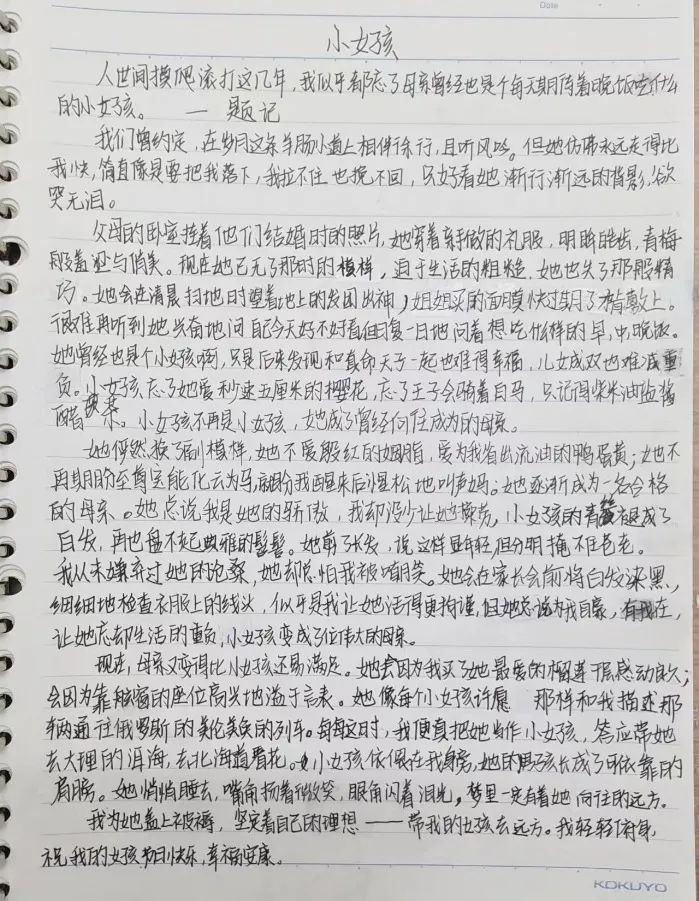 Date
小女孩
人世间摸爬滚打这几年，我似乎都忘了母亲曾经也是个每天期待着晚饭吃什么
的小女孩。 —— 题记
我们曾约定，在岁月这条羊肠小道上相伴徐行，且听风吟。但她仿佛永远走得比
我快，简直像是要把我落下，我拉不住也挽不回，只好看她渐行渐远的背影，欲
哭无泪。
父母的卧室挂着他们结婚时的照片，她穿着亲手做的礼服，明眸皓齿，青梅
般羞涩与俏美。现在她已无了那时的模样，迫于生活的粗糙，她也失了那股精
巧。她会在清晨扫地时望着地上的发团出神，姐姐买的面膜快过期了才敷上。
很难再听到她兴奋地问自己今天好不好看但日复一日地问着想吃什么样的早，中，晚饭。
她曾经也是个小女孩啊，只是后来发现和真命天子一起也难得幸福，儿女成双也难减重
负。小女孩忘了她爱秒速五厘米的樱花，忘了王子会骑着白马，只记得柴米油盐酱
醋茶。小女孩不再是小女孩，她成了曾经向往成为的母亲。
她俨然换了副模样，她不爱殷红的胭脂，爱为我省出流油的鸭蛋黄；她不
再期盼至尊宝能化云为马，就盼我醒来后惺松地叫声妈。她逐渐成为一名合格
的母亲。她总说我是她的骄傲，我却没少让她 小女孩的青 褪成了
白发，再也盘不起 雅的髻鬟。她剪了长发，说这样显年轻，但分明掩不住苍老。
我从未嫌弃过她的沧桑，她却总怕我被嘲笑。她会在家长会前将白发染黑，
细细地检查衣服上的线头，似乎是我让她活得更拘谨，但她总说为我自豪，有我在，
让她忘却生活的重负，小女孩变成了位伟大的母亲。
现在，母亲又变得比小女孩还易满足。她会因为我买了她最爱的榴莲千层感动良久；
会因为靠 窗的座位高兴地溢于言表。她像每个小女孩许愿 那样和我描述那
辆通往俄罗斯的美伦美奂的列车。每每这时，我便真把她当作小女孩，答应带她
去大理的洱海，去北海道看花。小女孩依偎在我身旁，她的男孩长成了可依靠的
肩膀。她悄悄睡去，嘴角扬着微笑，眼角闪着泪光，梦里一定有着她向往的远方。
我为她盖上被褥，坚定着自己的理想——带我的女孩去远方。我轻轻俯身，
祝我的女孩节日快乐，幸福安康。
KOKUYO